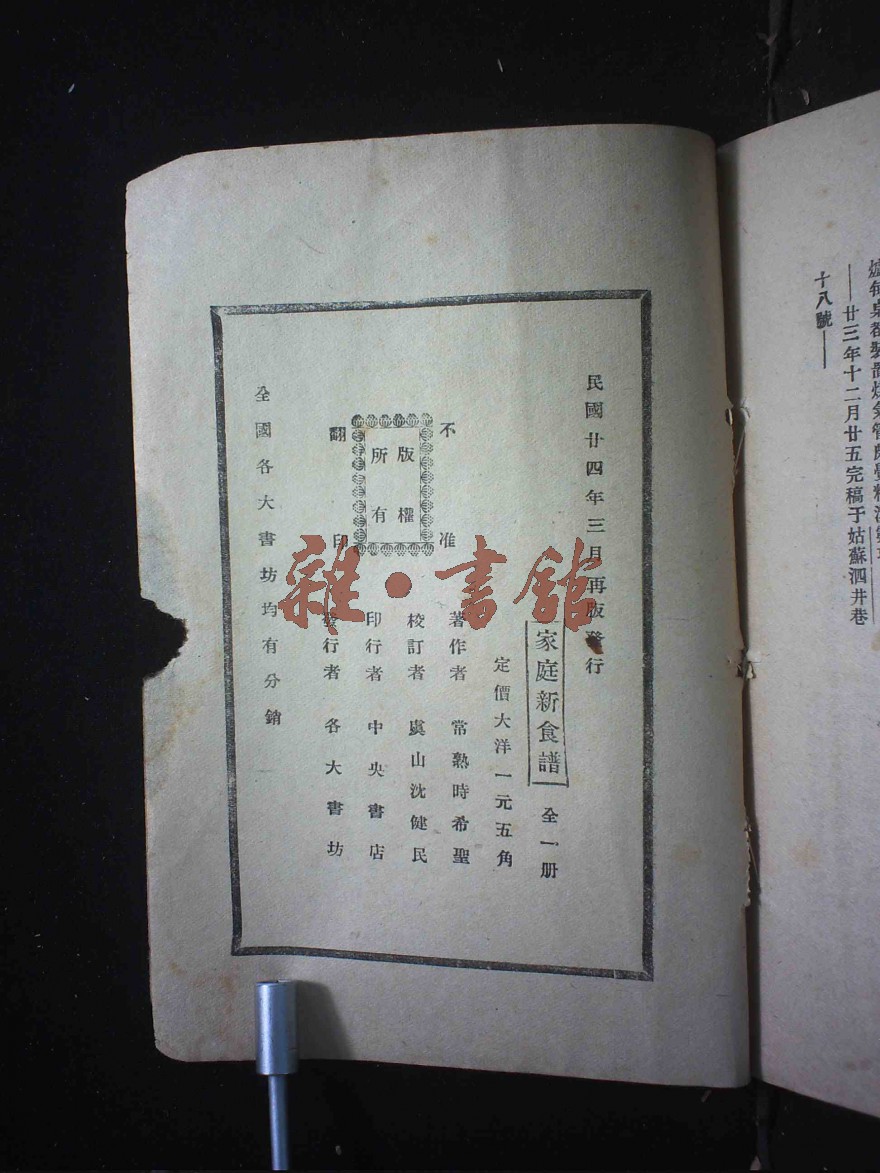 爐每桌都裝置煤氣管
——廿三年十二月廿五完稿于姑蘇泗井巷
十八號——
民國廿四年三月再版發行
家庭新食譜 全一册
定價大洋一元五角
著作者 常熟時希聖
校訂者 虞山沈健民
印行者 中央書店
發行者 各大書坊
不准
版權
所有
翻印
全國各大書坊均有分銷
雜·書館